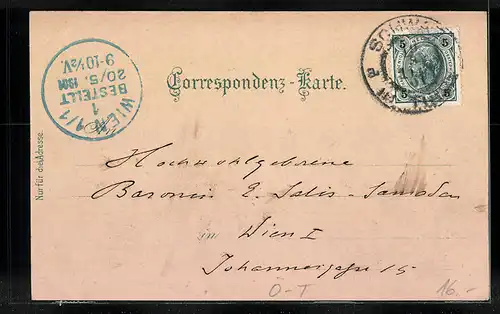 Correspondenz-Karte.
WIEN 1/1
1
BESTELLT
20/5. 1901
9-10½V.
5 5
Nur für die Adresse.
Hochwohlgeborene
Baronin E. Salis-Samaden
in Wien I
Johannesgasse 15
O-T
16.-